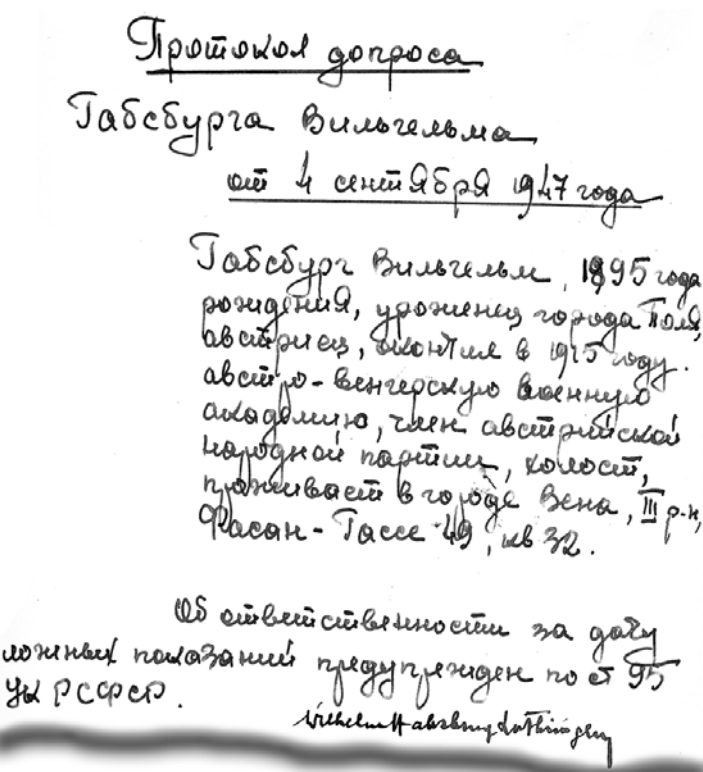 Протокол допроса
Габсбурга Вильгельма
от 4 сентября 1947 года
Габсбург Вильгельм, 1895 года
рождения, уроженец города Поля,
австриец, окончил в 1915 году.
австро-венгерскую военную
академию, член австрийской
народной партии, холост,
проживает в городе Вена, III р-н,
Фасан-Гассе 49, кв 32.
Об ответственности за дачу
ложных показаний предупрежден по ст 95
УК РСФСР.
Wilhelm Habsburg Lothringen